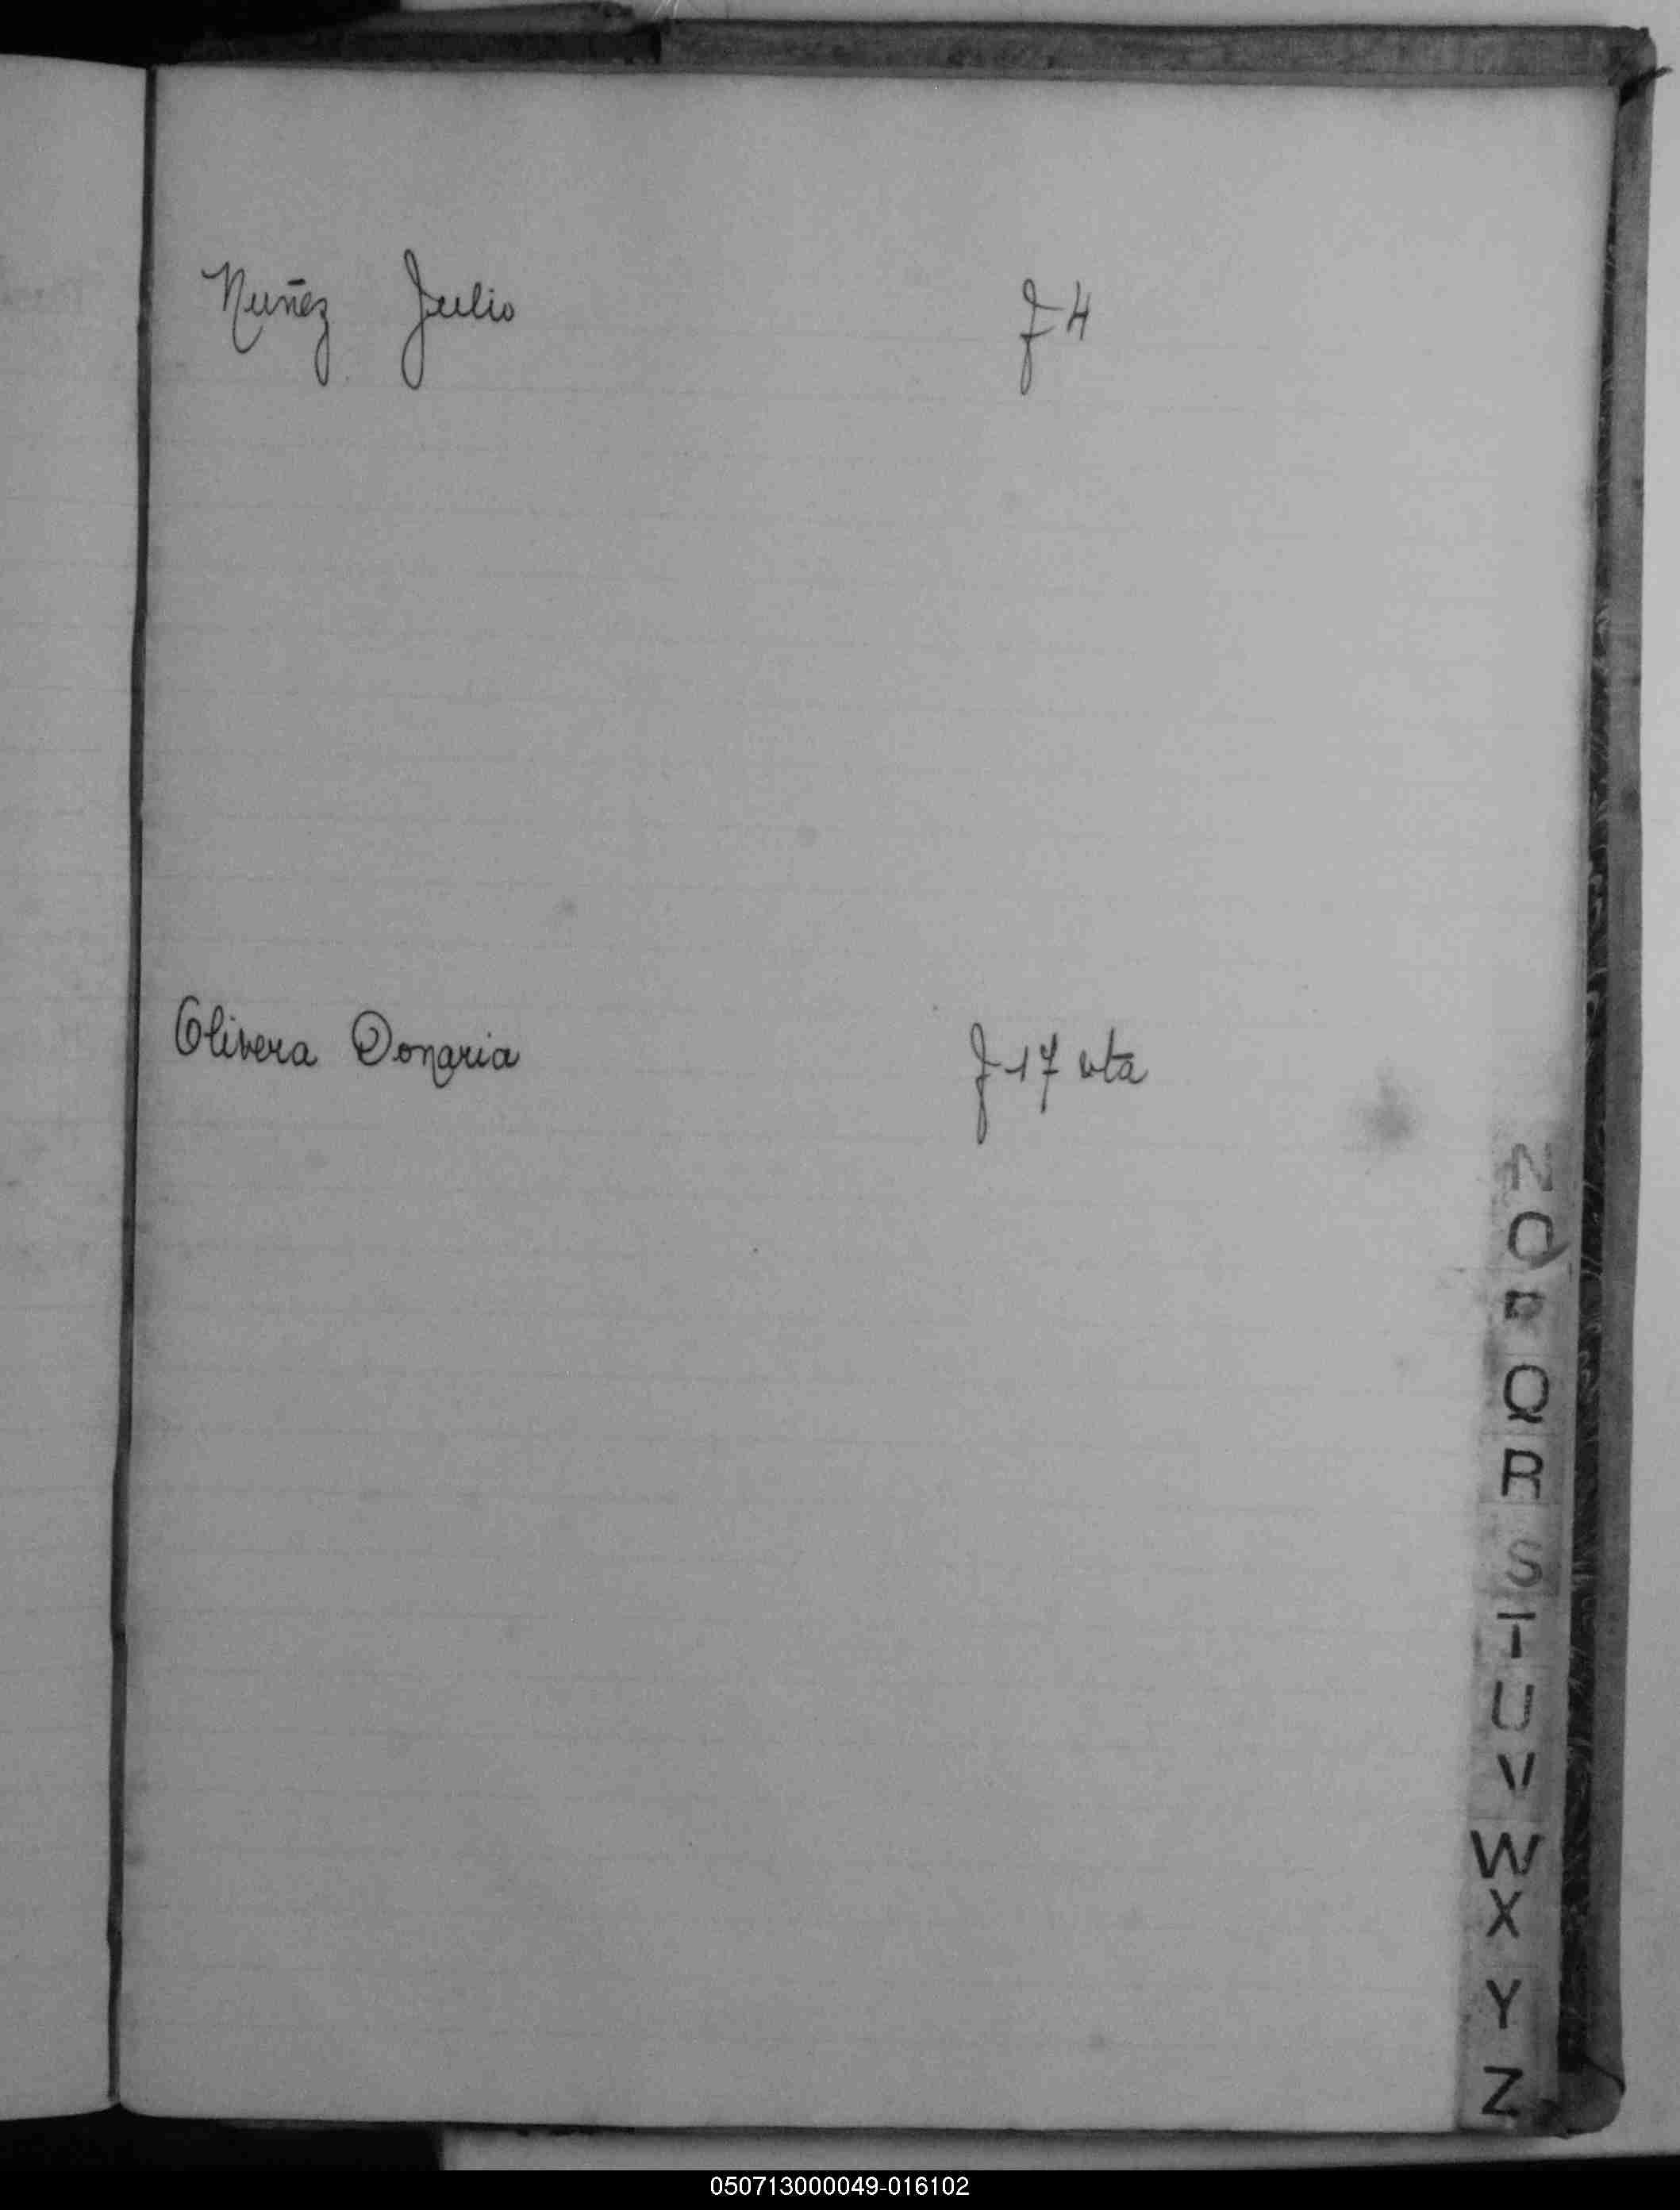 Nuñez Julio f 4
Olivera Donaria f 17 vta
N
O
P
Q
R
S
T
U
V
W
X
Y
Z
050713000049-016102